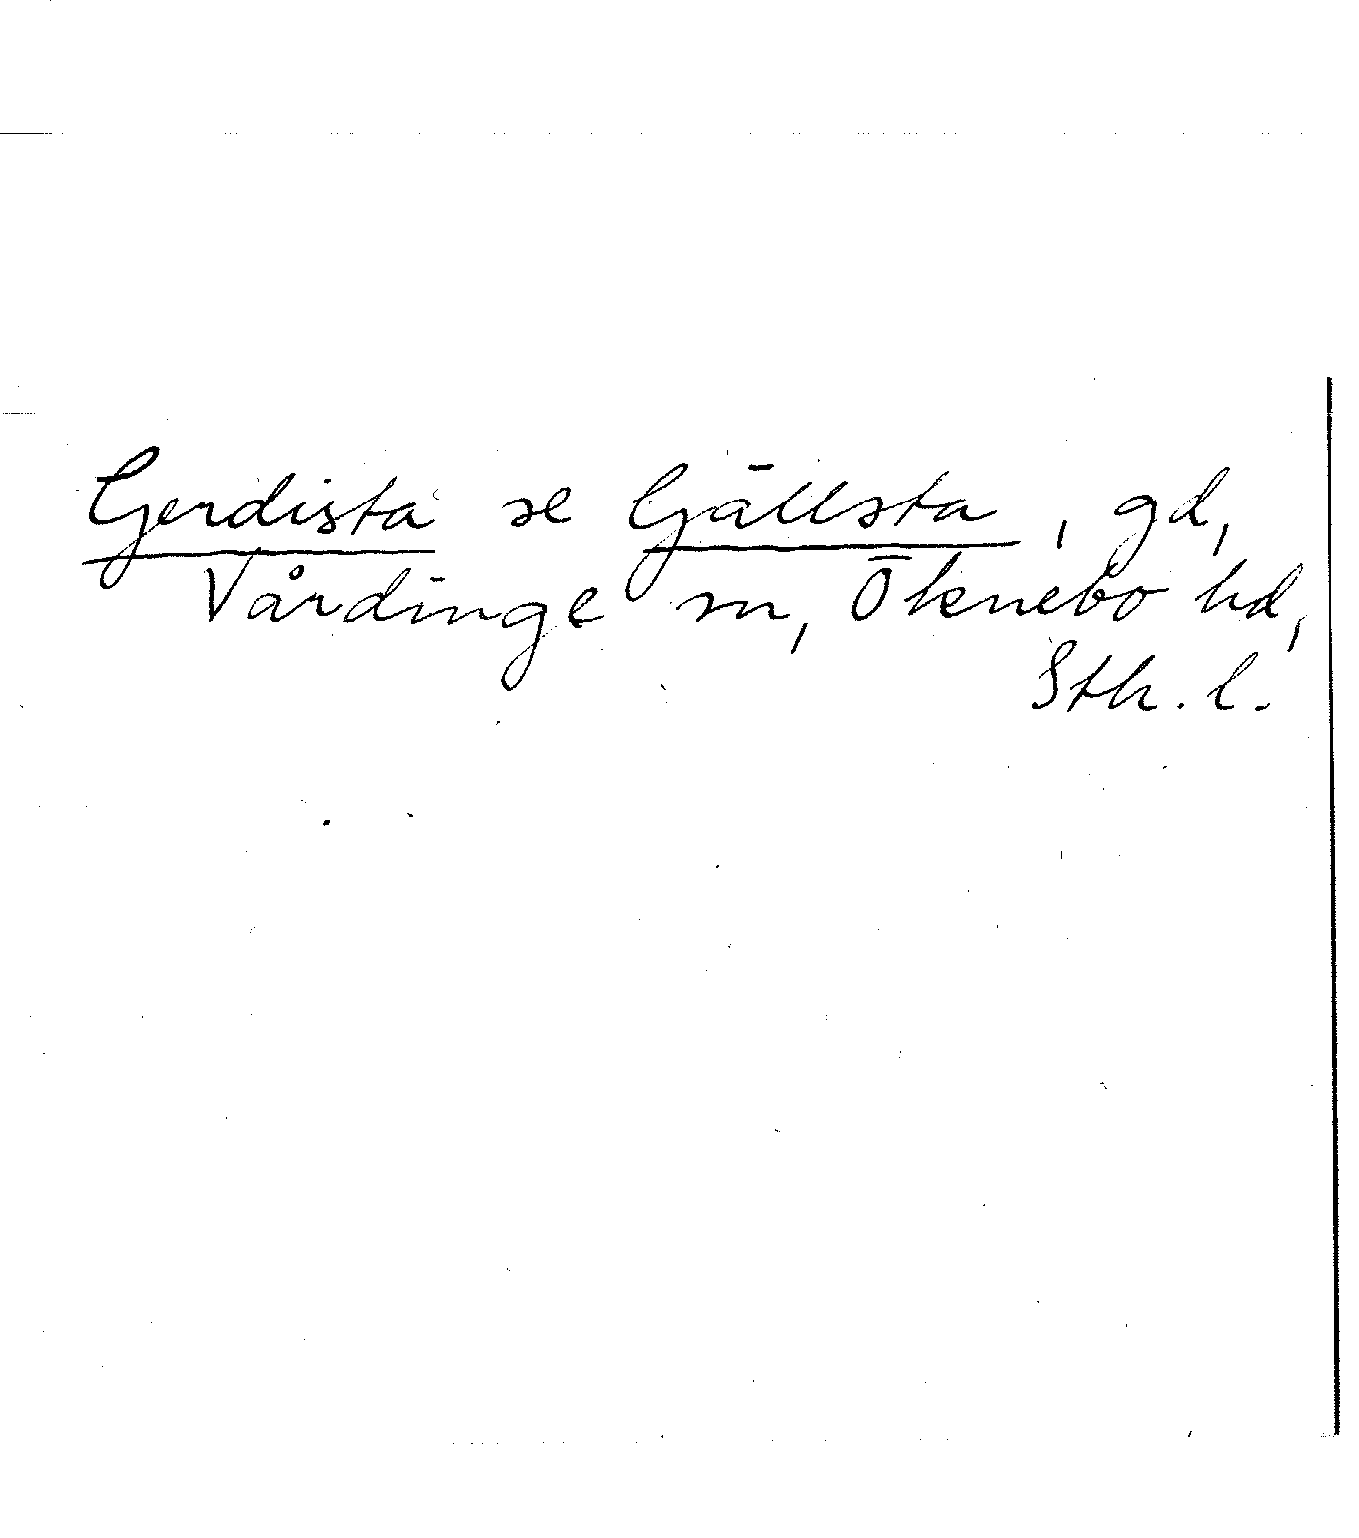 Gerdista se Gällsta, gd,
Vårdinge sn, Öknebo hd,
Sth. l.